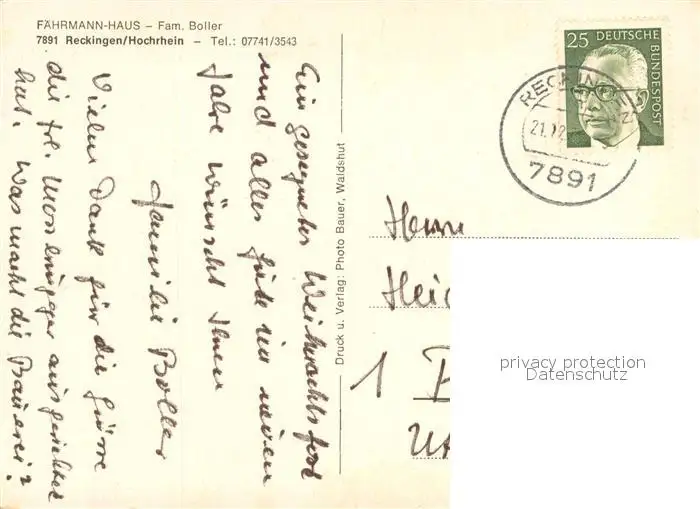 FÄHRMANN-HAUS – Fam. Boller
7891 Reckingen/Hochrhein – Tel.: 07741/3543
Ein gesegnetes Weihnachtsfest
und alles gute im neuen
Jahre wünscht Ihnen
Familie Boller
Vielen Dank für die Grüsse
die Frl. ausgerichtet
hat. Was macht die Brauerei?
Druck u. Verlag: Photo Bauer, Waldshut
25 DEUTSCHE
BUNDESPOST
RECKINGEN
21.12
7891
Herrn
Hei
1
privacy protection
Datenschutz